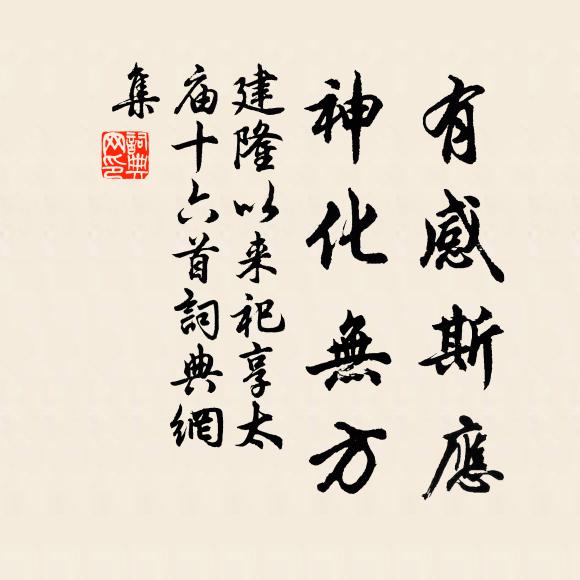 有感斯應
神化無方
建隆以来祀享太
庙十六首詞典網
集
詞典
网印